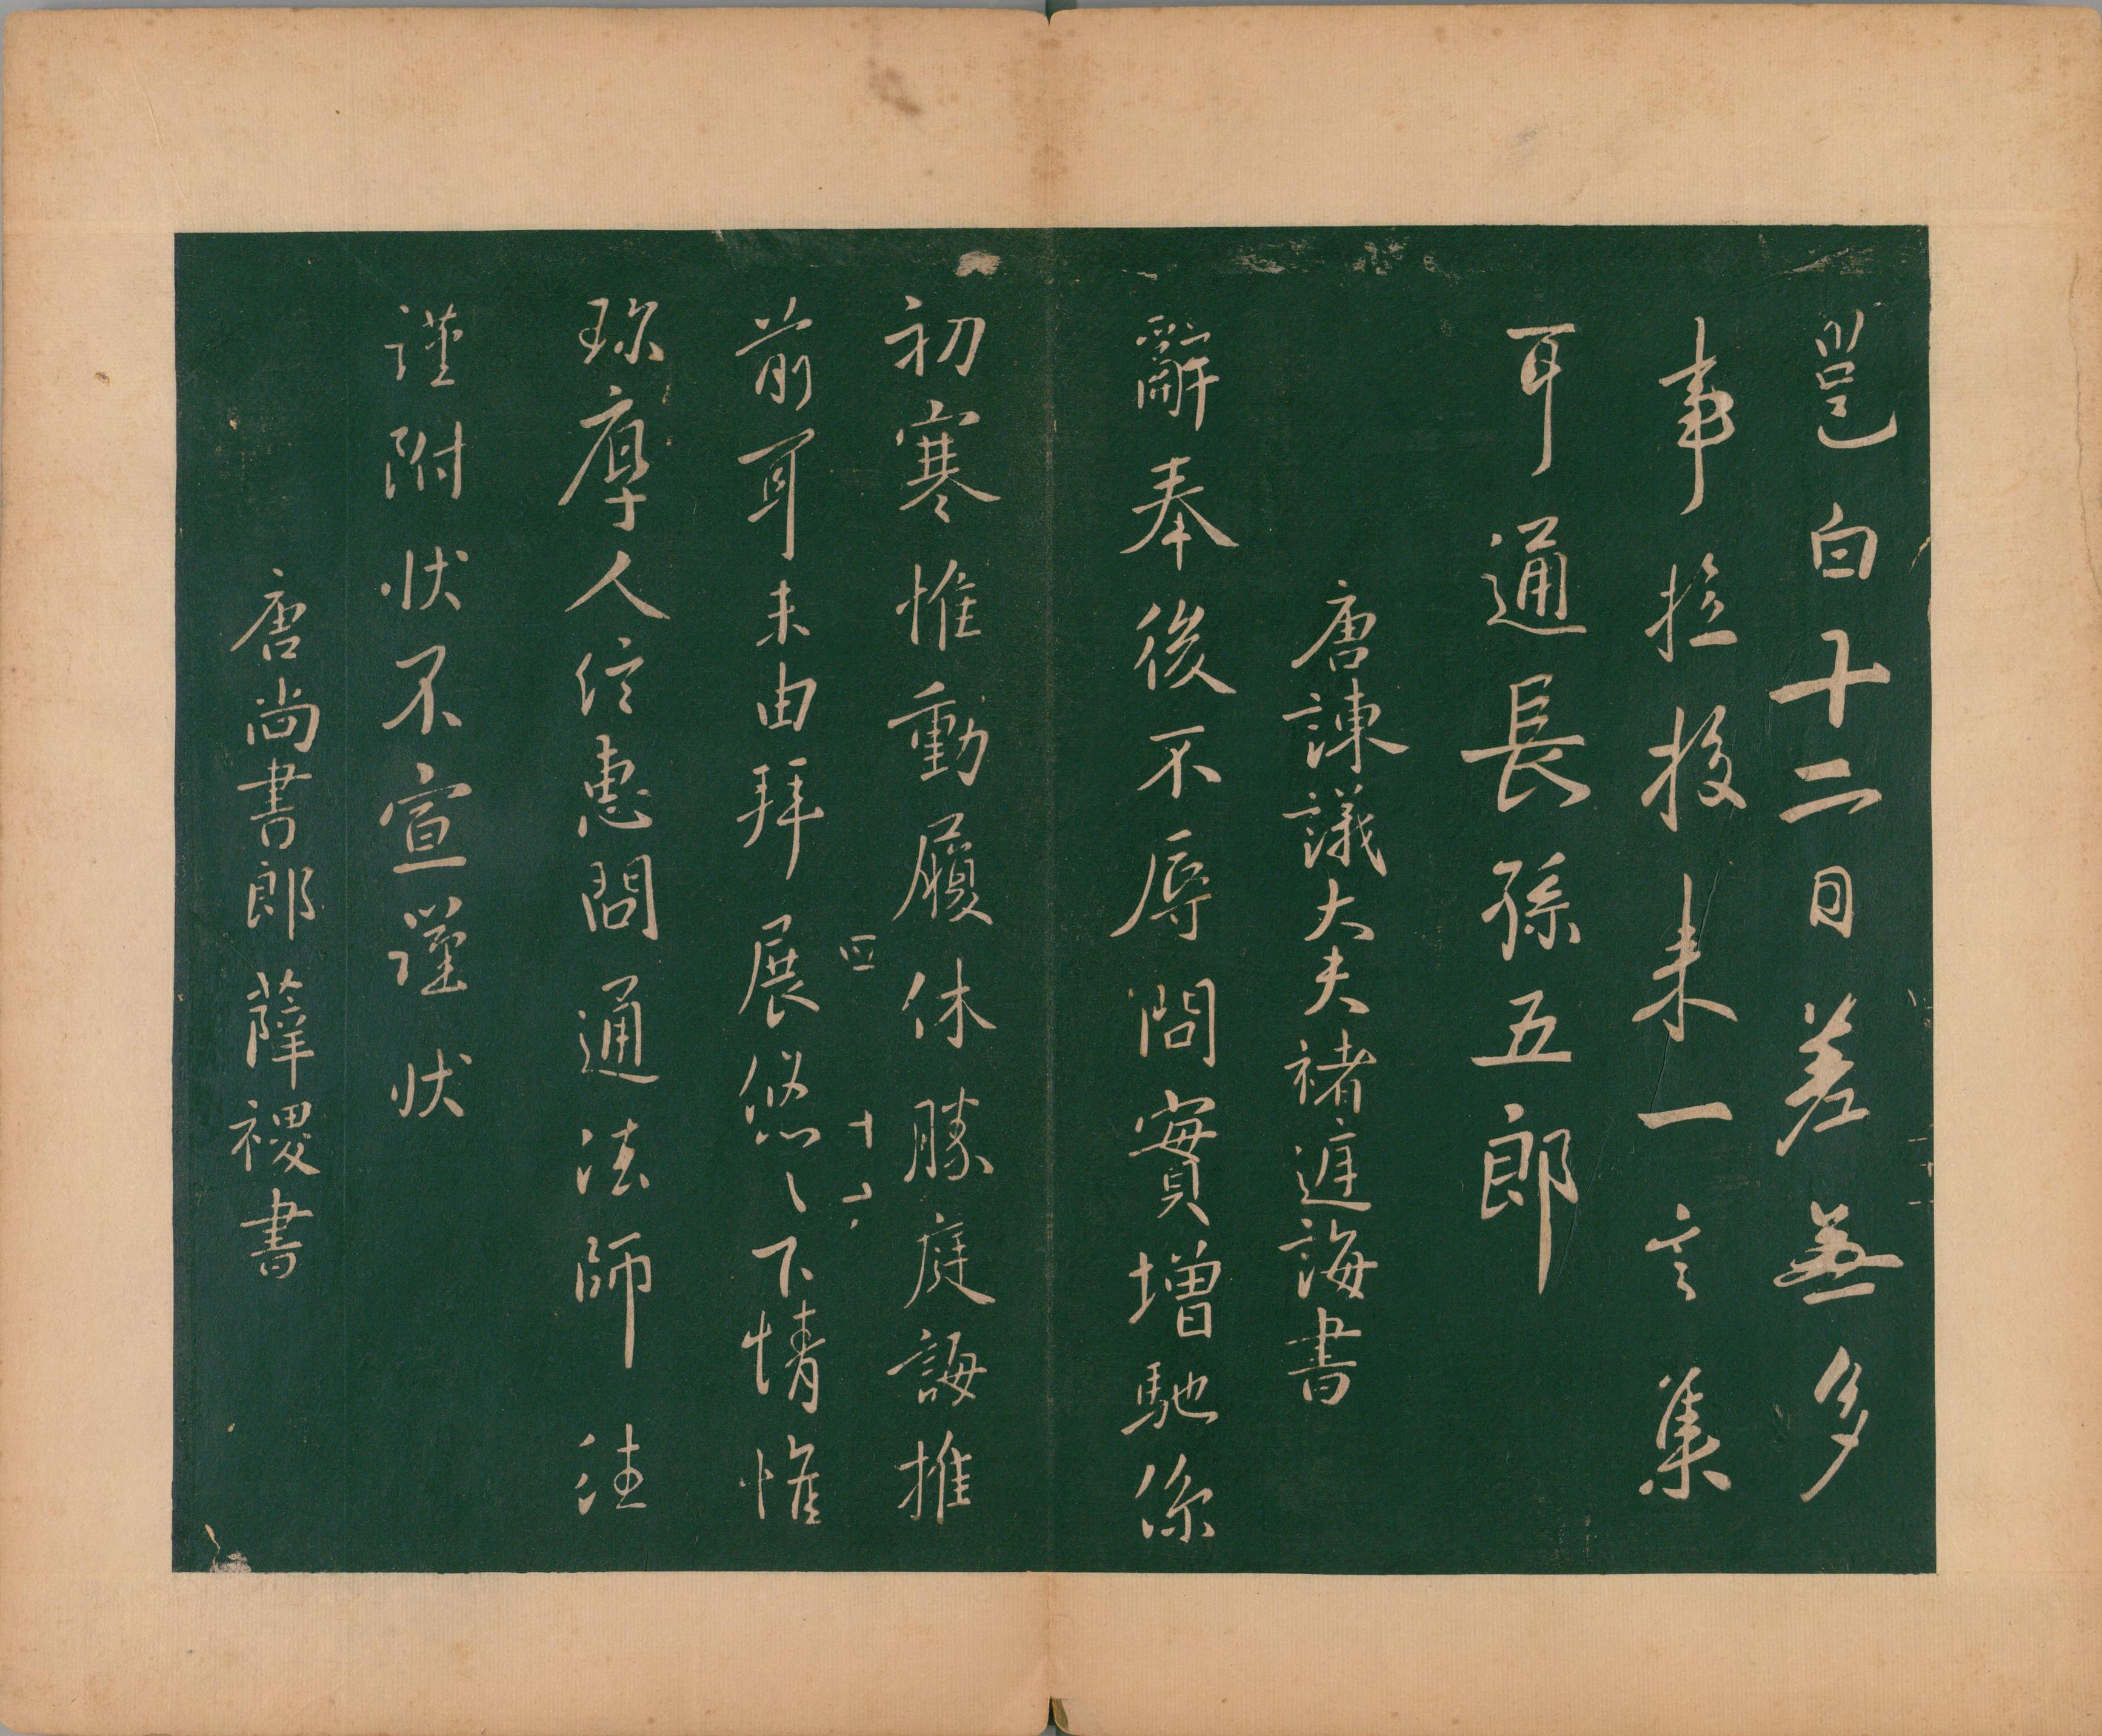 邕白十二日差無多
事投来一言集
耳通長孫五郎
唐諫議大夫褚庭誨書
辭奉後不辱問實增馳係
初寒惟動履休勝庭誨推
四 十
前耳未由拜展悠〻下情惟
珎厚人信惠問通法師往
謹附状不宣謹状
唐尚書郎薛稷書